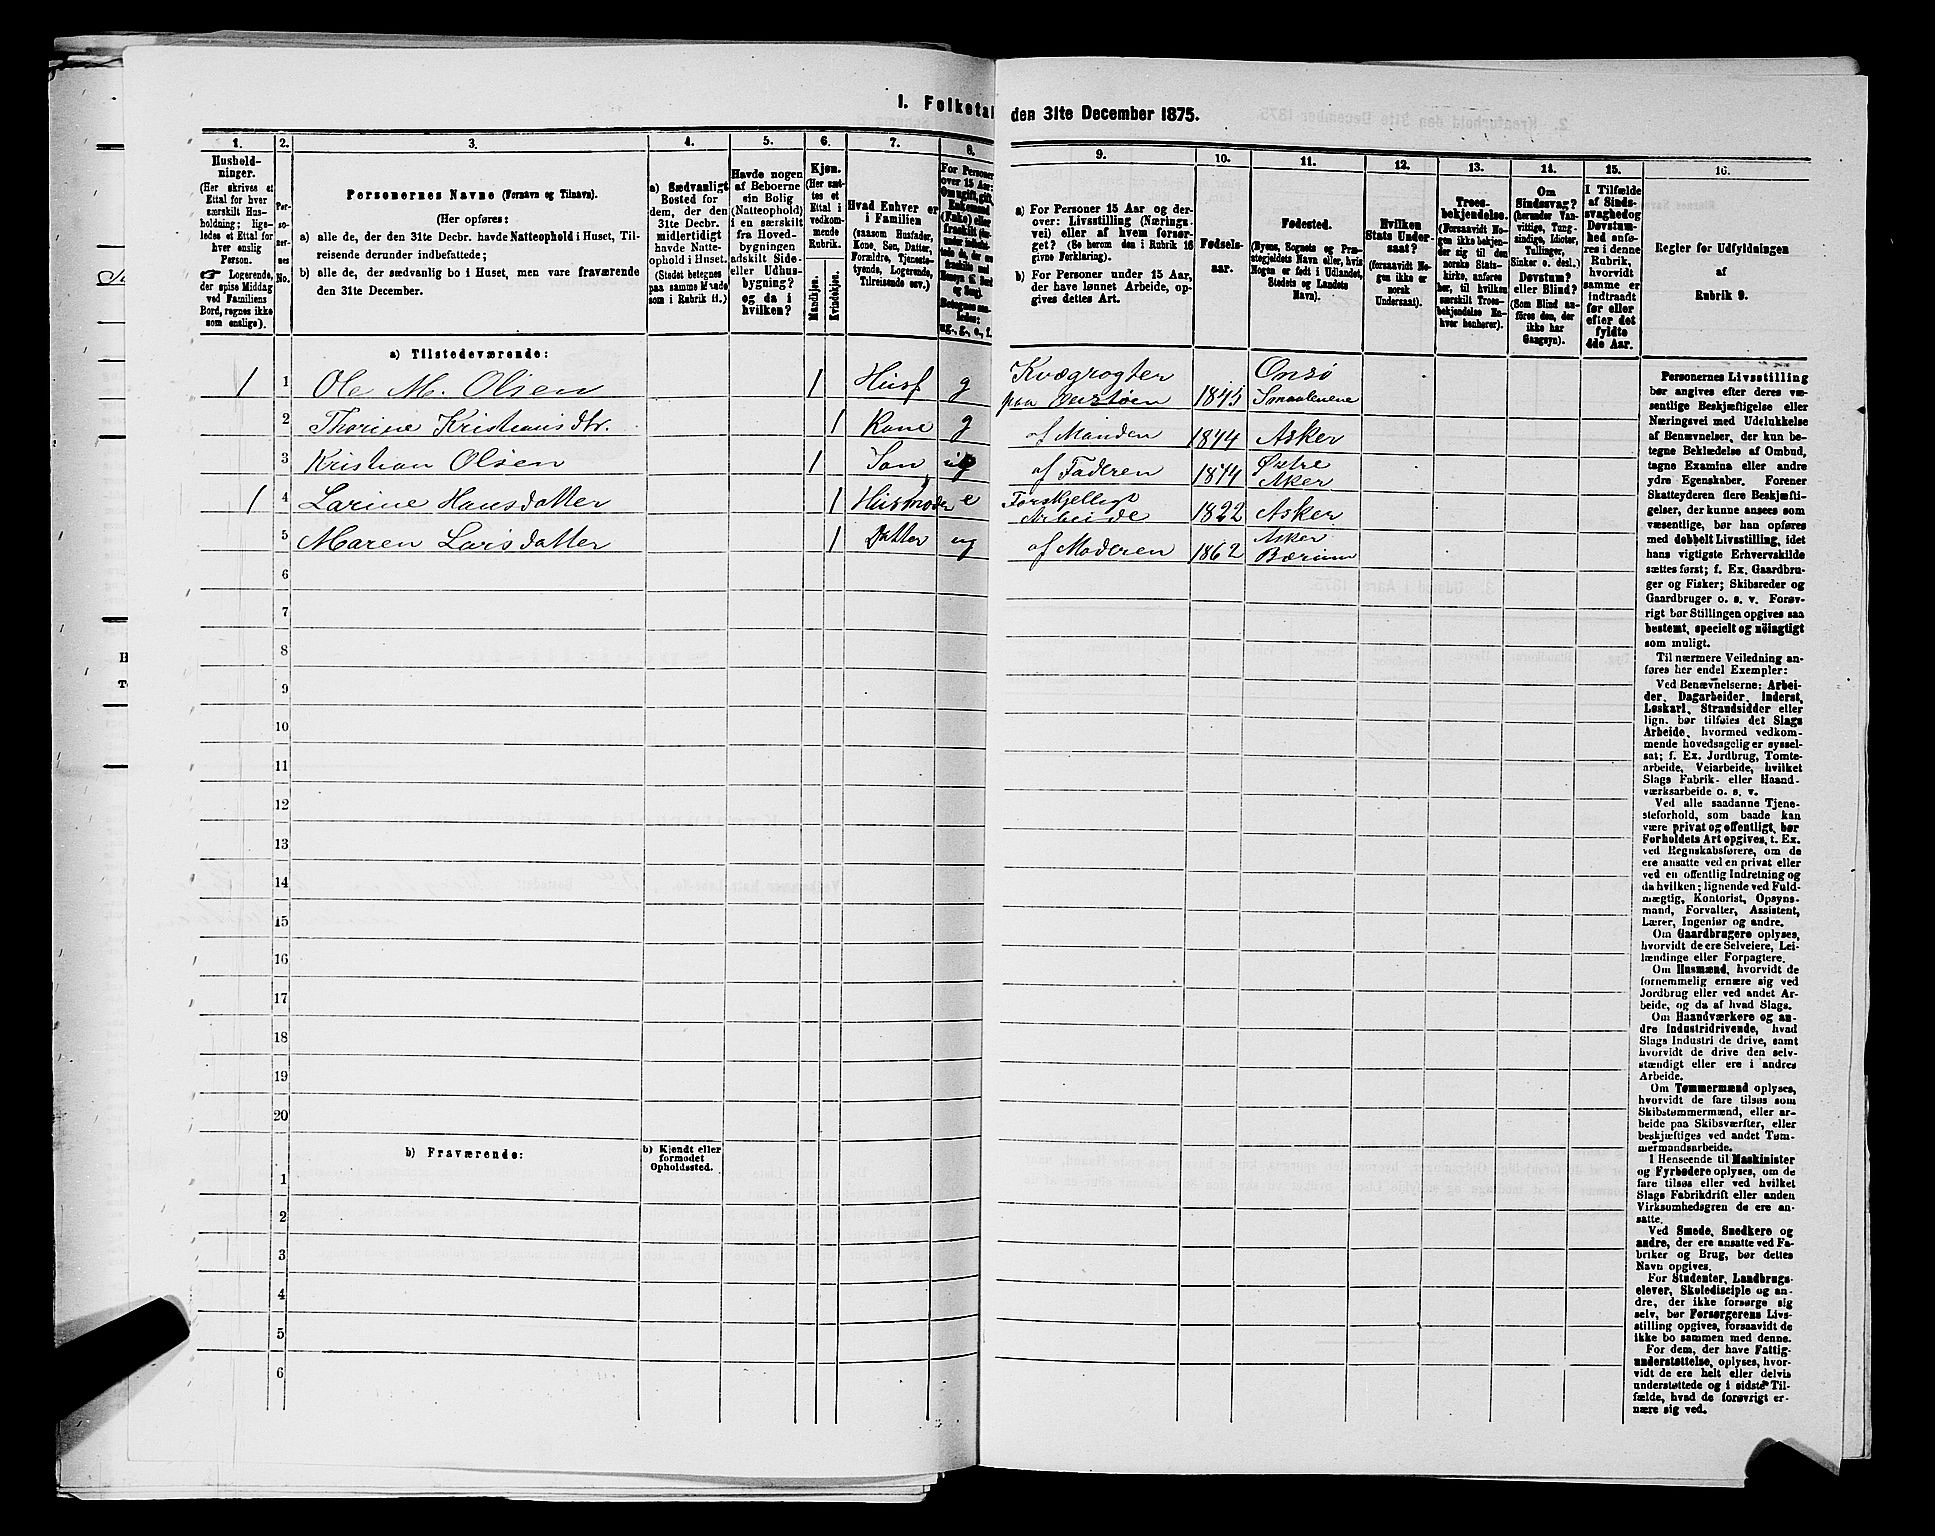 1. Folketal den 31te December 1875.
1.
Hushold-
ninger.
(Her skrives et
Ettal for hver
særskilt Hus-
holdning; lige-
ledes et Ettal for
hver enslig
Person.
☞ Logerende,
der spise Middag
ved Familiens
Bord, regnes ikke
som enslige).
2.
Per-
so-
ner-
nes
No.
3.
Personernes Navne (Fornavn og Tilnavn).
(Her opføres:
a) alle de, der den 31te Decbr. havde Natteophold i Huset, Til-
reisende derunder indbefattede;
b) alle de, der sædvanlig bo i Huset, men vare fraværende
den 31te December.
4.
a) Sædvanligt
Bosted for
dem, der den
31te Decbr.
midlertidigt
havde Natte-
ophold i Huset.
(Stedet betegnes
paa samme Maade
som i Rubrik 11.)
5.
Havde nogen
af Beboerne
sin Bolig
(Natteophold)
i en særskilt
fra Hoved-
bygningen
adskilt Side-
eller Udhus-
bygning?
og da i
hvilken?
6.
Kjøn.
(Her sæt-
tes et
Ettal i
vedkom-
mende
Rubrik.
Mandkjøn.
Kvindekjøn.
7.
Hvad Enhver er
i Familien
(saasom Husfader,
Kone, Søn, Datter,
Forældre, Tjeneste-
tyende, Logerende,
Tilreisende osv.)
8.
For Personer
over 15 Aar:
Om ugift, gift,
Enkemand
(Enke) eller
fraskilt
ug., g., e., f.
9.
a) For Personer 15 Aar og der-
over: Livsstilling (Nærings-
vei) eller af hvem forsør-
get? (Se herom den i Rubrik 16
givne Forklaring).
b) For Personer under 15 Aar,
der have lønnet Arbeide, op-
gives dettes Art.
10.
Fødsels-
aar.
11.
Fødested.
(Byens, Sognets og Præ-
stegjeldets Navn eller, hvis
Nogen er født i Udlandet,
Stedets og Landets
Navn).
12.
Hvilken
Stats Under-
saat?
(forsaavidt No-
gen ikke er
norsk
Undersaat).
13.
Troes-
bekjendelse.
(Forsaavidt No-
gen ikke bekjen-
der sig til den
norske Stats-
kirke, anføres
her, til hvilken
særskilt Troes-
bekjendelse En-
hver henhører).
14.
Om
Sindssvag?
(herunder Van-
vittige, Tung-
sindige, Idioter,
Tullinger,
Sinker o. desl.)
Døvstum?
eller Blind?
(Som Blind an-
føres den, der
ikke har
Gangsyn).
15.
I Tilfælde
af Sinds-
svaghed og
Døvstum-
hed anfø-
res i denne
Rubrik,
hvorvidt
samme er
indtraadt
før eller
efter det
fyldte
4de Aar.
16.
Regler for Udfyldningen
af
Rubrik 9.
a) Tilstedeværende:
1 1 Ole M. Olsen 1 Husf g Kvægrøgter 1845 Onsø
paa Smaalenene
2 Thorine Kristiansdtr. 1 Kone g af Manden 1844 Asker
3 Kristian Olsen 1 Søn ug af Faderen 1874 Østre
Aker
1 4 Larine Hansdatter 1 Husmoder e Forskjelligt
Arbeide 1822 Asker
5 Maren Larsdatter 1 Datter ug af Moderen 1862 Asker
Bærum
6
7
8
9
10
11
12
13
14
15
16
17
18
19
20
b) Fraværende:
b) Kjendt eller
formodet
Opholdssted.
1
2
3
4
5
6
Personernes Livsstilling
bør angives efter deres væ-
sentlige Beskjæftigelse eller
Næringsvei med Udelukkelse
af Benævnelser, der kun be-
tegne Beklædelse af Ombud,
tagne Examina eller andre
ydre Egenskaber. Forener
Skatteyderen flere Beskjæfti-
gelser, der kunne ansees som
væsentlige, bør han opføres
med dobbelt Livsstilling, idet
hans vigtigste Erhvervskilde
sættes først; f. Ex. Gaardbru-
ger og Fisker; Skibsreder og
Gaardbruger o. s. v. Forøv-
rigt bør Stillingen opgives saa
bestemt, specielt og nöiagtigt
som muligt.
Til nærmere Veiledning an-
føres her endel Exempler:
Ved Benævnelserne: Arbei-
der, Dagarbeider, Inderst,
Løskarl, Strandsidder eller
lign. bør tilføies det Slags
Arbeide, hvormed vedkom-
mende hovedsagelig er syssel-
sat; f. Ex. Jordbrug, Tomte-
arbeide, Veiarbeide, hvilket
Slags Fabrik- eller Haand-
værksarbeide o. s. v.
Ved alle saadanne Tjene-
steforhold, som baade kan
være privat og offentligt, bør
Forholdets Art opgives, t. Ex.
ved Regnskabsførere, om de
ere ansatte ved en privat eller
ved en offentlig Indretning og
da hvilken; lignende ved Fuld-
mægtig, Kontorist, Opsyns-
mand, Forvalter, Assistent,
Lærer, Ingeniør og andre.
Om Gaardbrugere oplyses,
hvorvidt de ere Selveiere, Lei-
lændinge eller Forpagtere.
Om Husmænd, hvorvidt de
fornemmelig ernære sig ved
Jordbrug eller ved andet Ar-
beide, og da af hvad Slags.
Om Haandværkere og an-
dre Industridrivende, hvad
Slags Industri de drive, samt
hvorvidt de drive den selv-
stændigt eller ere i andres
Arbeide.
Om Tømmermænd oplyses,
hvorvidt de fare tilsøs som
Skibstømmermænd, eller ar-
beide paa Skibsværfter, eller
beskjæftiges ved andet Tøm-
mermandsarbeide.
I Henseende til Maskinister
og Fyrbødere oplyses, om de
fare tilsøs eller ved hvilket
Slags Fabrikdrift eller anden
Virksomhedsgren de ere an-
satte.
Ved Smede, Snedkere og
andre, der ere ansatte ved Fa-
briker og Brug, bør dettes
Navn opgives.
For Studenter, Landbrugs-
elever, Skoledisciple og an-
dre, der ikke forsørge sig
selv, bør Forsørgerens Livs-
stilling opgives, forsaavidt de
ikke bo sammen med denne.
For dem, der have Fattig-
understøttelse, oplyses, hvor-
vidt de ere helt eller delvis
understøttede og i sidste Til-
fælde, hvad de forøvrigt er-
nære sig ved.